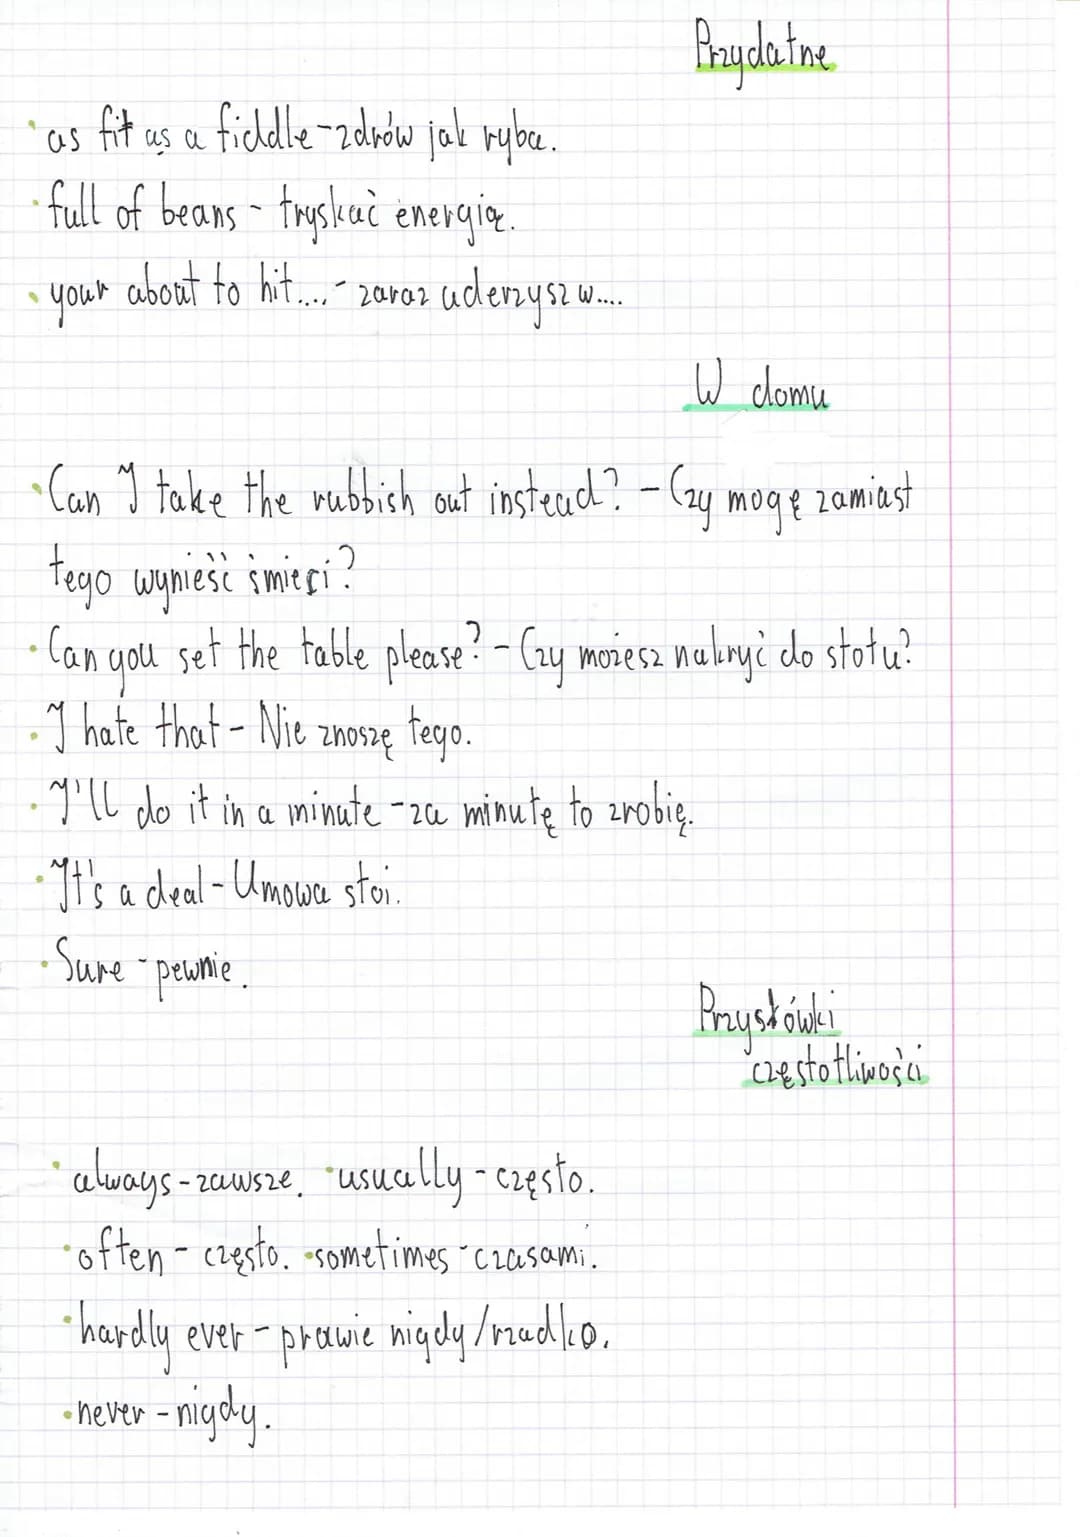 Przydatne
as fit as a fiddle - zdrów jak ryba.
full of beans - tryskać energią.
your about to hit.... - zaraz uderzysz w....
W domu
Can I take the rubbish out instead? - Czy mogę zamiast
tego wynieść śmieci?
Can you set the table please? - Czy możesz nakryć do stołu?
I hate that - Nie znoszę tego.
I'll do it in a minute - za minutę to zrobię.
It's a deal - Umowa stoi.
Sure - pewnie.
Przysłówki
częstotliwości
always - zawsze. usually - często.
often - często. sometimes - czasami.
hardly ever - prawie nigdy/rzadko.
never - nigdy.